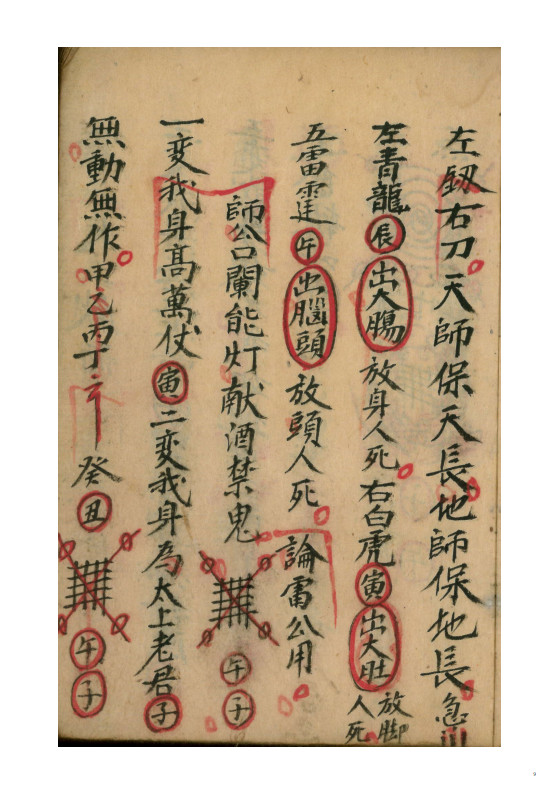 左釼右刀天師保天長地師保地長急
左青龍辰出大腸放身人死右白虎寅出大肚放脚人死
五雷霆午出腦頭放頭人死論雷公用
師公闌能灯献酒禁鬼午子
一变我身髙萬仗寅二变我身為太上老君子
無動無作甲乙丙丁癸丑午子